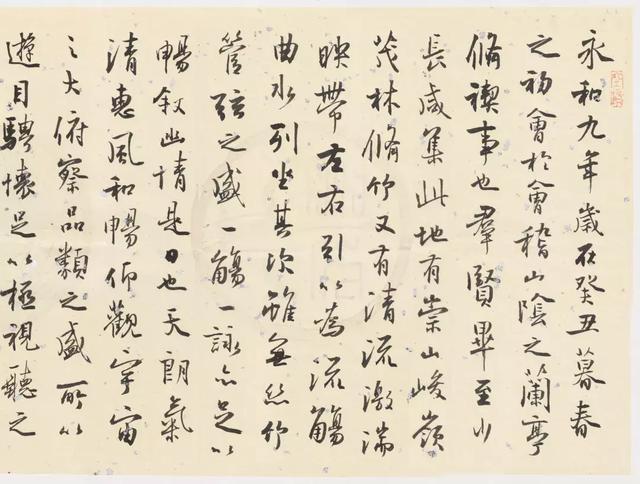 永和九年歲在癸丑暮春
之初會於會稽山陰之蘭亭
脩禊事也羣賢畢至少
長咸集此地有崇山峻嶺
茂林脩竹又有清流激湍
映帶左右引以為流觴
曲水列坐其次雖無絲竹
管弦之盛一觴一詠亦足以
暢叙幽情是日也天朗氣
清惠風和暢仰觀宇宙
之大俯察品類之盛所以
遊目騁懷足以極視聽之